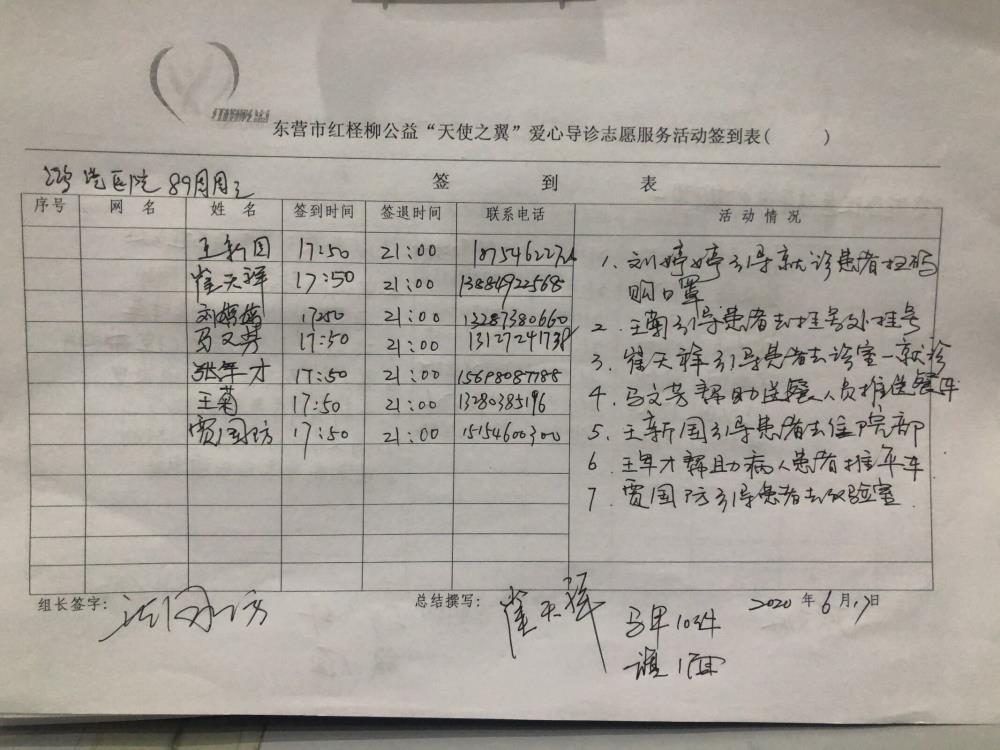 东营市红柽柳公益“天使之翼”爱心导诊志愿服务活动签到表( )
签 到 表
医院 89周周三
序号 网 名 姓 名 签到时间 签退时间 联系电话 活动情况
王新国 17:50 21:00
崔天祥 17:50 21:00 13884922568
刘婷婷 1750 21:00 13287380660
马文芳 17:50 21:00
张年才 17:50 21:00 15698087788
王菊 17:50 21:00 13280385196
贾国防 17:50 21:00 15154600300
1、刘婷婷引导就诊患者扫码
购口罩
2、王菊引导患者去挂号处挂号
3、崔天祥引导患者去诊室一就诊
4、马文芳帮助送餐人员推送餐车
5、王新国引导患者去住院部
6 王年才帮助病人患者推平车
7、贾国防引导患者去化验室
组长签字: 总结撰写: 崔天祥 2020 年 6 月 17 日
马甲 10件
旗 1面